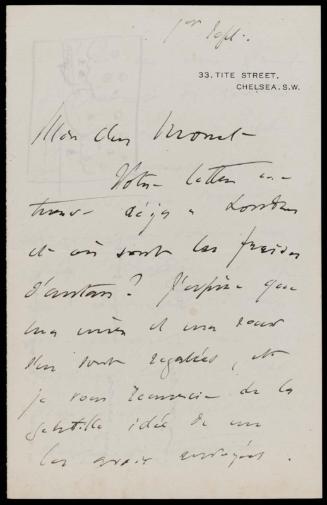 1er Sept.
33, TITE STREET,
CHELSEA. S.W.
Mon cher Monet
Votre lettre me
trouve déjà à Londres
et où sont les fraises
d'antan? J'espère que
ma mère et ma soeur
s'en sont régalées, et
je vous remercie de la
gentille idée de me
les avoir envoyées.